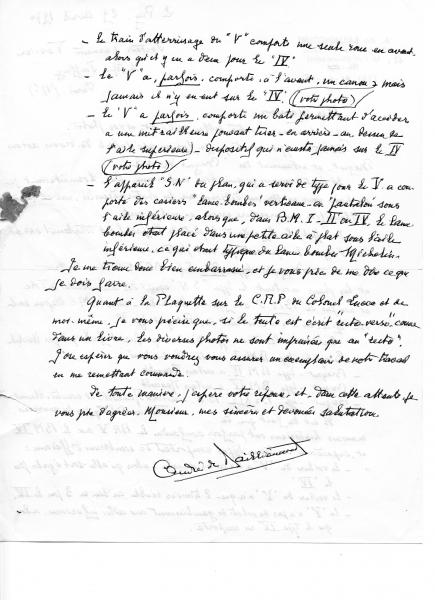 - Le train d'atterrissage du "V" comporte une seule roue en avant.
alors qu'il y en a deux pour le "IV"
- Le "V" a, parfois, comporté, à l'avant, un canon, mais
jamais il n'y en eut sur le "IV" (votre photo)
- Le "V" a parfois, comporté un bati permettant d'accéder
à une mitrailleuse pouvant tirer en arrière au dessus de
l'aile supérieure) - dispositif qui n'exista jamais sur le IV
(votre photo)
- L'appareil "S.N" du plan, qui a servi de type pour le V a com-
porté des casiers "lance-bombes" verticaux en sous
l'aile inférieure, alors que, dans B.M. I - II ou IV, le lance
bombes était placé dans une petite aile à plat sous l'aile
inférieure, ce qui était typique du lance bombes Michelin.
Je me trouve donc bien embarrassé, et je vous prie de me dire ce que
je dois faire.
Quant à la Plaquette sur le C.R.P. du Colonel et de
moi-même, je vous précise que, si le texte est écrit "recto verso" comme
dans un livre, les diverses photos ne sont imprimées que au "recto".
J'ose espérer que vous voudrez vous assurer un exemplaire de notre travail
en me remettant commande.
De toute manière, j'espère votre réponse, et, dans cette attente, je
vous prie d'agréer, Monsieur, mes sincères et dévouées salutations
André de